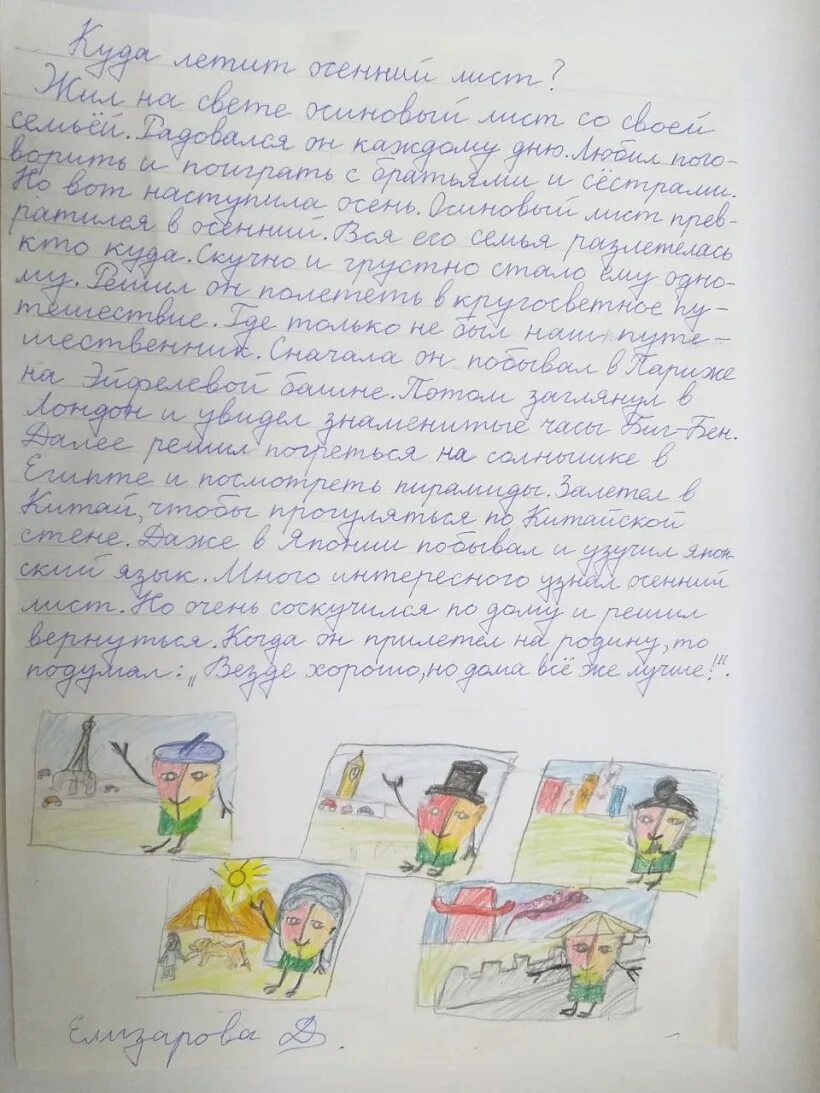 Куда летит осенний лист?
Жил на свете осиновый лист со своей
семьёй. Радовался он каждому дню. Любил пого-
ворить и поиграть с братьями и сёстрами.
Но вот наступила осень. Осиновый лист прев-
ратился в осенний. Вся его семья разлетелась
кто куда. Скучно и грустно стало ему одно-
му. Решил он полететь в кругосветное пу-
тешествие. Где только не был наш путе-
шественник. Сначала он побывал в Париже
на Эйфелевой башне. Потом заглянул в
Лондон и увидел знаменитые часы Биг-Бен.
Далее решил погреться на солнышке в
Египте и посмотреть пирамиды. Залетел в
Китай, чтобы прогуляться по Китайской
стене. Даже в Японии побывал и узучил япон-
ский язык. Много интересного узнал осенний
лист. Но очень соскучился по дому и решил
вернуться. Когда он прилетел на родину, то
подумал: „Везде хорошо, но дома всё же лучше!".
Елизарова Д.